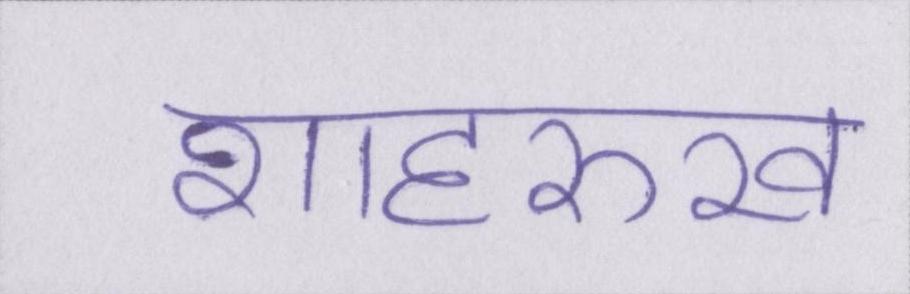 शाहरुख